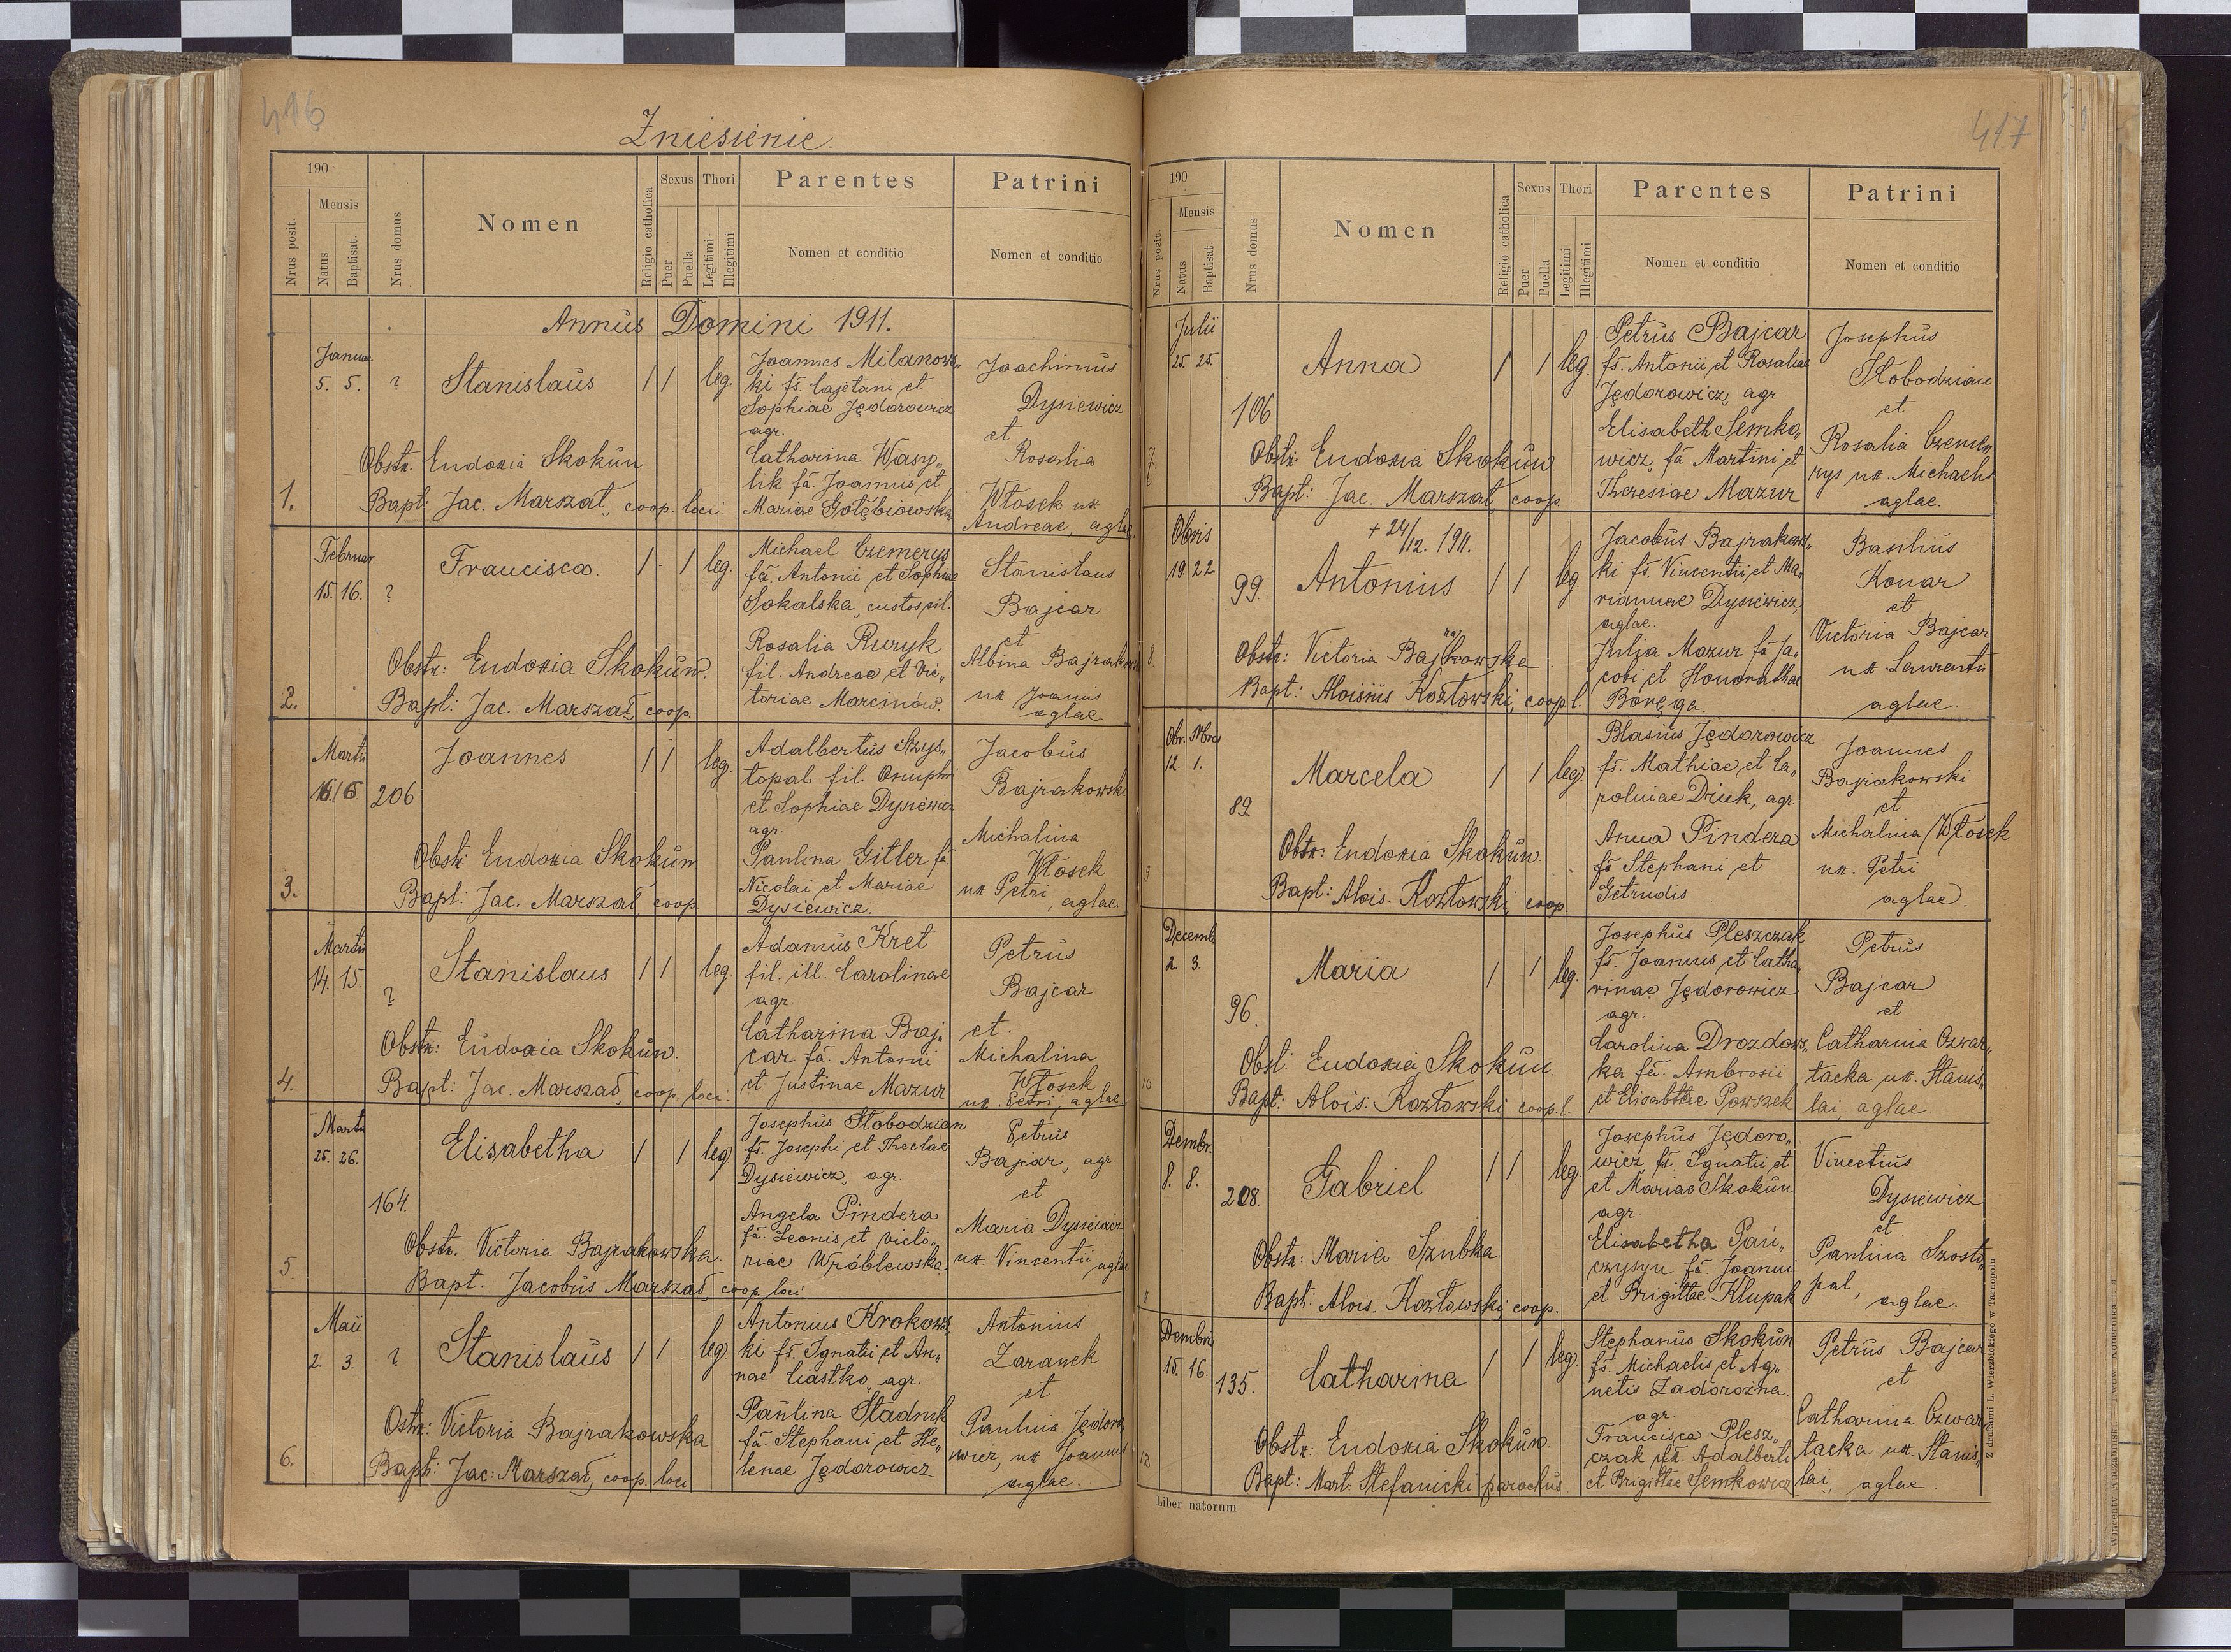 416
Zniesienie.
190
Nrus posit.
Mensis
Natus
Baptisat.
Nrus domus
Nomen
Religio catholica
Sexus
Puer
Puella
Thori
Legitimi
Illegitimi
Parentes
Nomen et conditio
Patrini
Nomen et conditio
Annus Domini 1911.
1.
Januar.
5. 5. ?
Stanislaus
1 1 leg.
Joannes Milanows„
ki fs. Cajetani et
Sophiae Jędorowicz
agr.
Catharina Wasy„
lik fa. Joannis et
Mariae Gołębiowska
Joachimus
Dysiewicz
et
Rosalia
Włosek ux
Andreae, aglae
Obstr. Eudoxia Skokun
Bapt: Jac. Marszał, coop. loci.
2.
Februar.
15. 16. ?
Francisca.
1 1 leg.
Michael Czemerys
fs. Antonii et Sophiae
Sokalska, custos sil.
Rosalia Ruryk
fil. Andreae et Vic„
toriae Marcinów.
Stanislaus
Bajcar
et
Albina Bajrakows
ux. Joannis
aglae.
Obstr: Eudoxia Skokun.
Bapt: Jac. Marszał, coop.
3.
Martii
206
Joannes
1 1 leg.
Adalbertus Szys„
topal fil. Onuphri
et Sophiae Dysiewicz
agr.
Paulina Gitler fa
Nicolai et Mariae
Dysiewicz.
Jacobus
Bajrakowski
Michalina
Włosek
ux Petri, aglae.
Obstr Eudoxia Skokun
Bapt: Jac. Marszał, coop.
4.
Martii
14. 15. ?
Stanislaus
1 1 leg.
Adamus Kret
fil. ill. Carolinae
agr.
Catharina Baj„
car fa. Antonii
et Justinae Mazur
Petrus
Bajcar
et.
Michalina
Włosek
ux. Petri, aglae
Obstr: Eudoxia Skokun.
Bapt: Jac. Marszał, coop. loci.
5.
Martii
25. 26.
164.
Elisabetha
1 1 leg.
Josephus Słobodzian
fs. Josephi et Theclae
Dysiewicz, agr.
Angela Pindera
fa. Leonis et Victo„
riae Wróblewska
Petrus
Bajcar, agr.
et
Maria Dysiewicz
ux. Vincentii aglae
Obstr. Victoria Bajrakowska.
Bapt. Jacobus Marszał, coop. loci
6.
Maii
2. 3. ?
Stanislaus
1 1 leg.
Antonius Krokows„
ki fs. Ignatii et An„
nae Ciastko, agr.
Paulina Stadnik
fa. Stephani et He„
lenae Jędorowicz
Antonius
Zaranek
et
Paulina Jędoro„
wicz, ux Joannis
aglae.
Ostr: Victoria Bajrakowska
Bapt: Jac: Marszał, coop. loci
417
190
Nrus posit.
Mensis
Natus
Baptisat.
Nrus domus
Nomen
Religio catholica
Sexus
Puer
Puella
Thori
Legitimi
Illegitimi
Parentes
Nomen et conditio
Patrini
Nomen et conditio
7.
Julii
25. 25.
106
Anna
1 1 leg
Petrus Bajcar
fs. Antonii et Rosaliae
Jędorowicz, agr
Elisabeth Semko„
wicz, fa Martini et
Theresiae Mazur
Josephus
Słobodzian
et
Rosalia Czeme„
rys ux. Michaelis
aglae.
Obstr: Eudoxia Skokun
Bapt: Jac. Marszał, coop.
8
Obris
19. 22
99.
+ 24/12. 1911.
Antonius
1 1 leg
Jacobus Bajrakows„
ki fs. Vincentii et Ma„
riannae Dysiewicz,
aglae.
Julia Mazur fa Ja„
cobi et Honorathae
Boręga.
Basilius
Konar
et
Victoria Bajcar
ux Laurentii
aglae.
Obstr: Victoria Bajrakowska
Bapt: Aloisius Kozłowski, coop. l.
9
Obr. Nbris
12. 1.
89
Marcela
1 1 leg
Blasius Jędorowicz
fs. Mathiae et Ca„
rolinae Diuk, agr.
Anna Pindera
fs Stephani et
Getrudis
Joannes
Bajrakowski
et
Michalina Włosek
ux. Petri
aglae.
Obstr: Eudoxia Skokun.
Bapt: Alois. Kozłowski, coop.
10
Decemb
2. 3.
96.
Maria
1 1 leg.
Josephus Pleszczak
fs. Joannis et Catha„
rinae Jędorowicz
agr.
Carolina Drozdows„
ka fa. Ambrosii
et Elisabthae Powszek
Petrus
Bajcar
et
Catharina Czwar„
tacka ux. Stanis„
lai, aglae.
Obst: Eudoxia Skokun.
Bapt: Alois. Kozłowski, coop. l.
Dembr.
8. 8.
208.
Gabriel
1 1 leg
Josephus Jędoro„
wicz, fs. Ignatii et
et Mariae Skokun
agr.
Elisabetha Pań„
czyszyn fa Joanni
et Brigittae Klupak
Vincetius
Dysiewicz
et
Paulina Szosto„
pal,
aglae.
Obstr: Maria Sznbka
Bapt: Alois. Kozłowski, coop.
12
Dembris
15. 16.
135.
Catharina
1 1 leg.
Stephanus Skokun
fs. Michaelis et Ag„
netis Zadorożna.
agr.
Francisca Plesz„
czak fa. Adalberti
et Brigittae Semkowicz
Petrus Bajcar
et
Catharina Czwar„
tacka ux. Stanis„
lai, aglae.
Obstr: Eudoxia Skokun.
Bapt: Mart: Stefanicki parochus
Liber natorum
Z drukarni L. Wierzbickiego w Tarnopolu